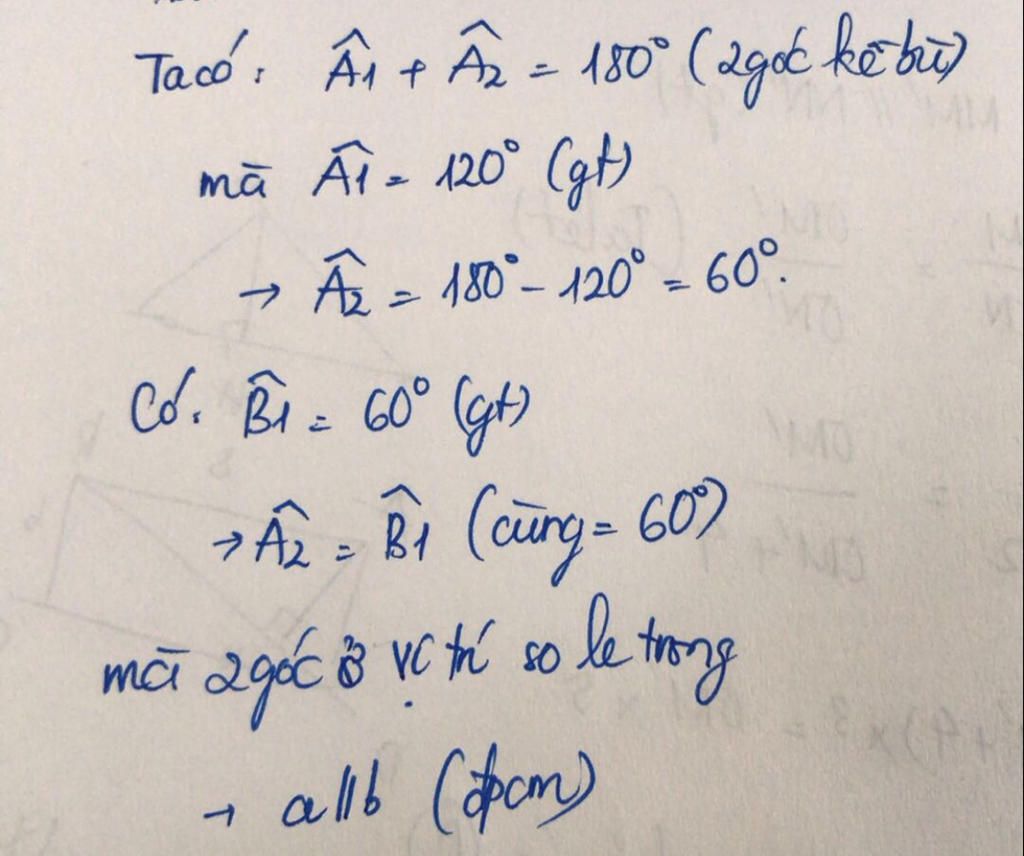 Ta có: Â1 + Â2 = 180° (2 góc kề bù)
mà Â1 = 120° (gt)
→ Â2 = 180° - 120° = 60°.
Có: B̂1 = 60° (gt)
→ Â2 = B̂1 (cùng = 60°)
mà 2 góc ở vị trí so le trong
→ a // b (đpcm)